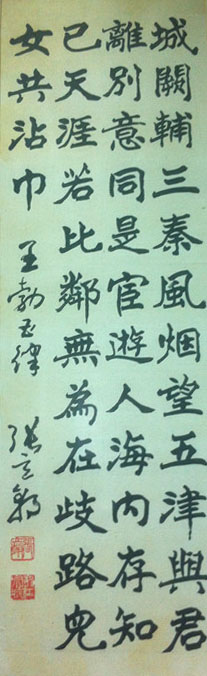 城闕輔三秦風烟望五津與君
離別意同是宦遊人海内存知
已天涯若比鄰無為在歧路兒
女共沾巾 王勃五律 張立